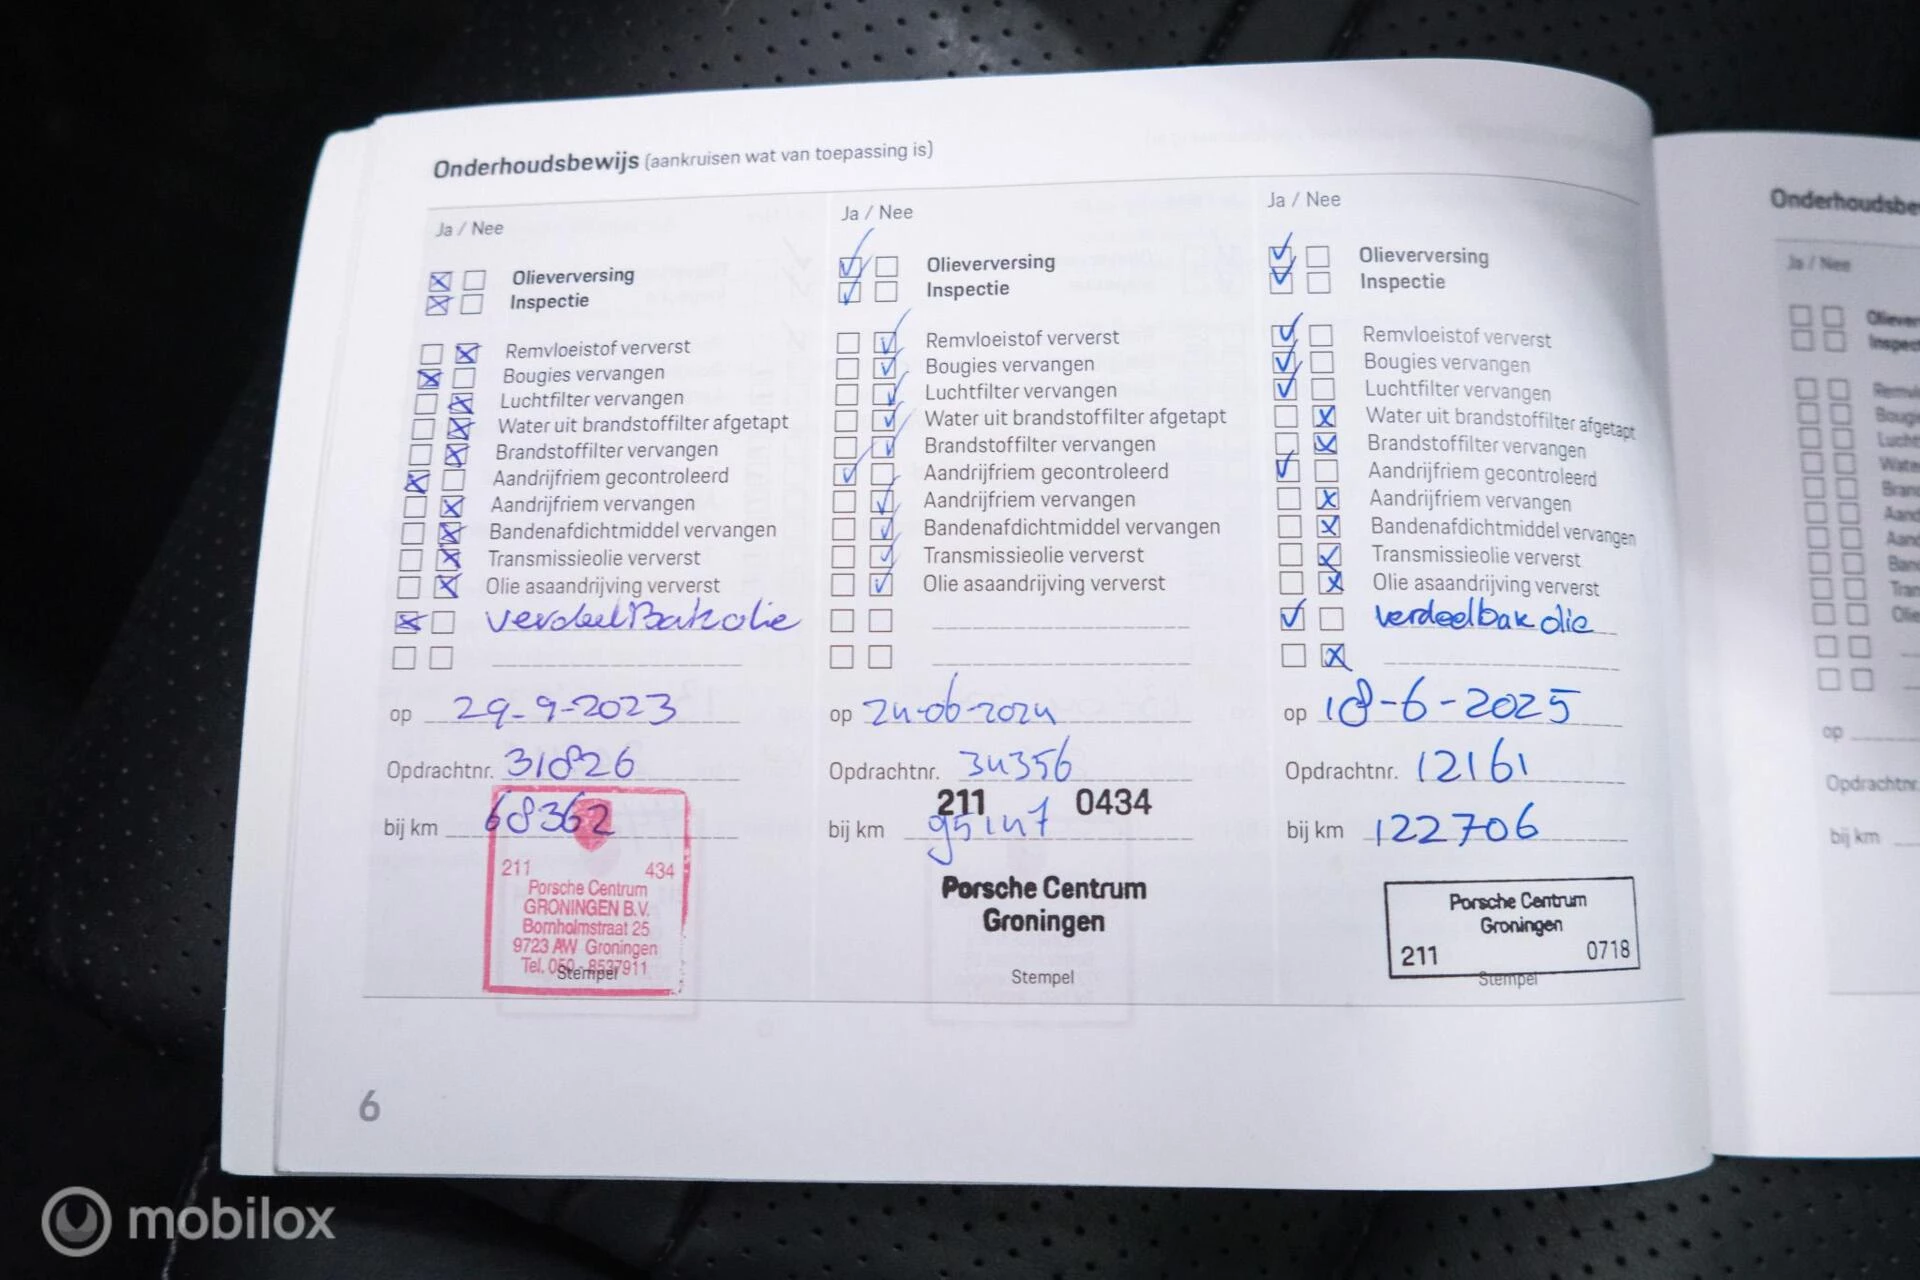 Onderhoudsbewijs (aankruisen wat van toepassing is)
Ja / Nee
Olieverversing
Inspectie
Remvloeistof ververst
Bougies vervangen
Luchtfilter vervangen
Water uit brandstoffilter afgetapt
Brandstoffilter vervangen
Aandrijfriem gecontroleerd
Aandrijfriem vervangen
Bandenafdichtmiddel vervangen
Transmissieolie ververst
Olie asaandrijving ververst
verdeelBakolie
op 29-9-2023
Opdrachtnr. 31826
bij km 68362
211 434
Porsche Centrum
GRONINGEN B.V.
Bornholmstraat 25
9723 AW Groningen
Tel. 050-8537911
Stempel
Ja / Nee
Olieverversing
Inspectie
Remvloeistof ververst
Bougies vervangen
Luchtfilter vervangen
Water uit brandstoffilter afgetapt
Brandstoffilter vervangen
Aandrijfriem gecontroleerd
Aandrijfriem vervangen
Bandenafdichtmiddel vervangen
Transmissieolie ververst
Olie asaandrijving ververst
op 24-06-2024
Opdrachtnr. 34356
211 0434
bij km 95147
Porsche Centrum
Groningen
Stempel
Ja / Nee
Olieverversing
Inspectie
Remvloeistof ververst
Bougies vervangen
Luchtfilter vervangen
Water uit brandstoffilter afgetapt
Brandstoffilter vervangen
Aandrijfriem gecontroleerd
Aandrijfriem vervangen
Bandenafdichtmiddel vervangen
Transmissieolie ververst
Olie asaandrijving ververst
verdeelbak olie
op 18-6-2025
Opdrachtnr. 12161
bij km 122706
Porsche Centrum
Groningen
211 0718
Stempel
6
Onderhoudsbe
Ja / Nee
Oliever
Inspect
op
Opdrachtnr.
bij km
mobilox